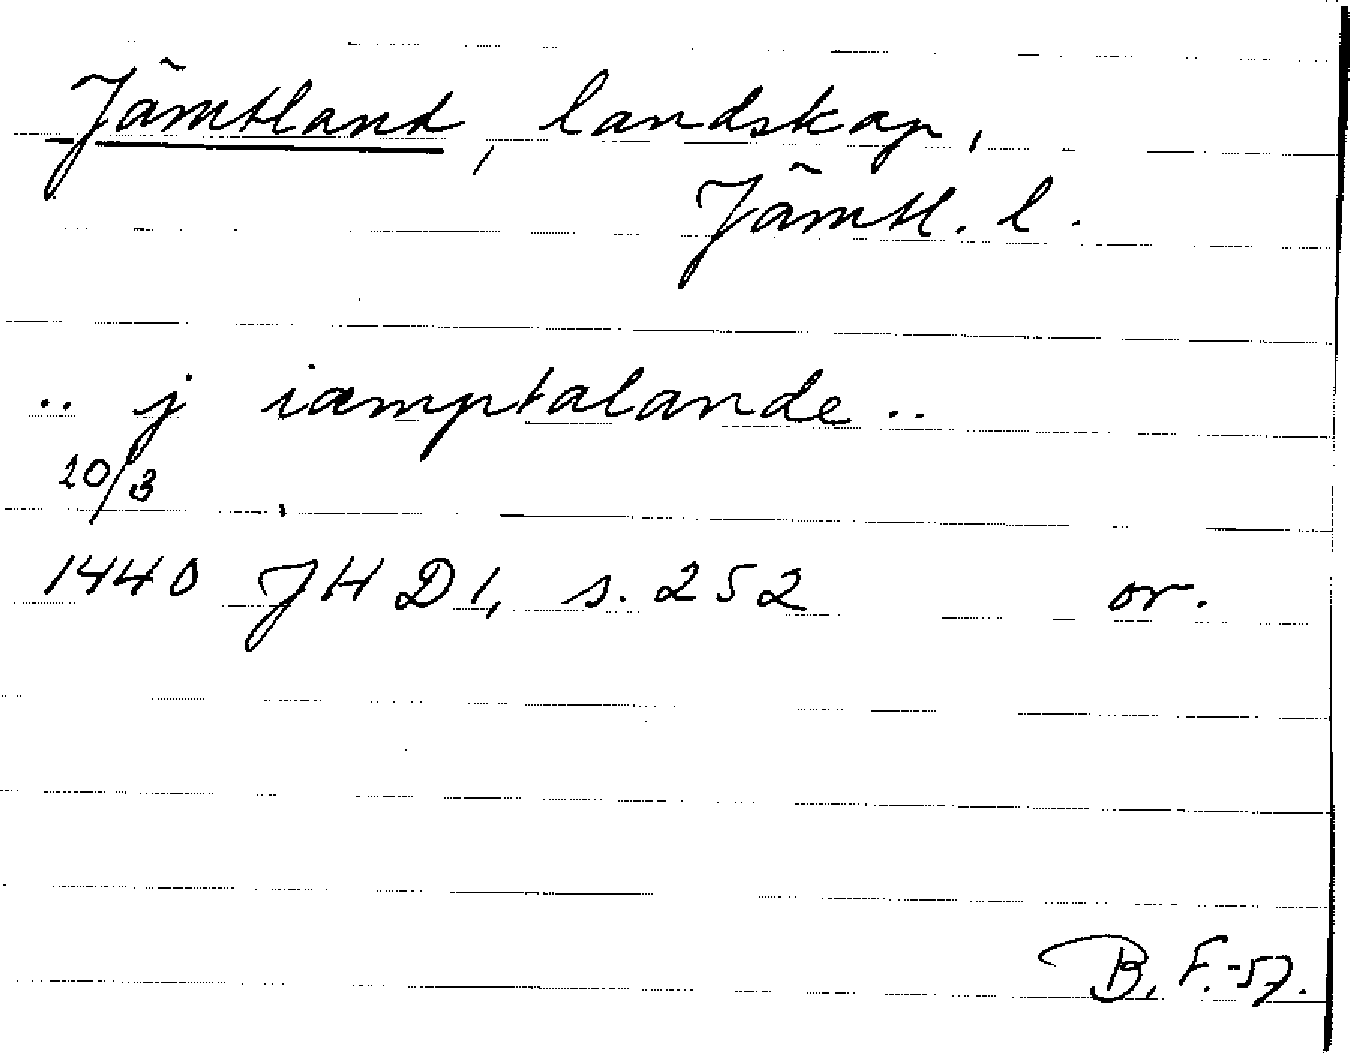 Jämtland, landskap,
Jämtl. l.
.. j iæmptalande ..
20/3
1440 JHD 1, s. 252 or.
B. F. -57.